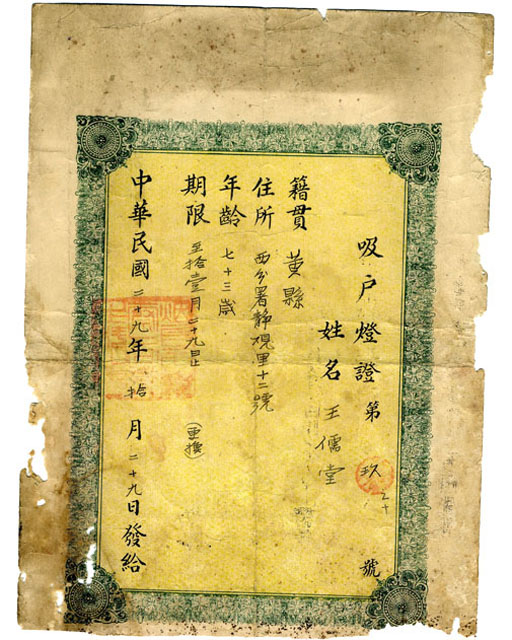 吸戶燈證第玖號
姓名王儒堂
籍貫黃縣
住所西分署靜觀里十二號
年齡七十三歲
期限至拾壹月二十九日止
(更換)
中華民國二十九年拾月二十九日發給